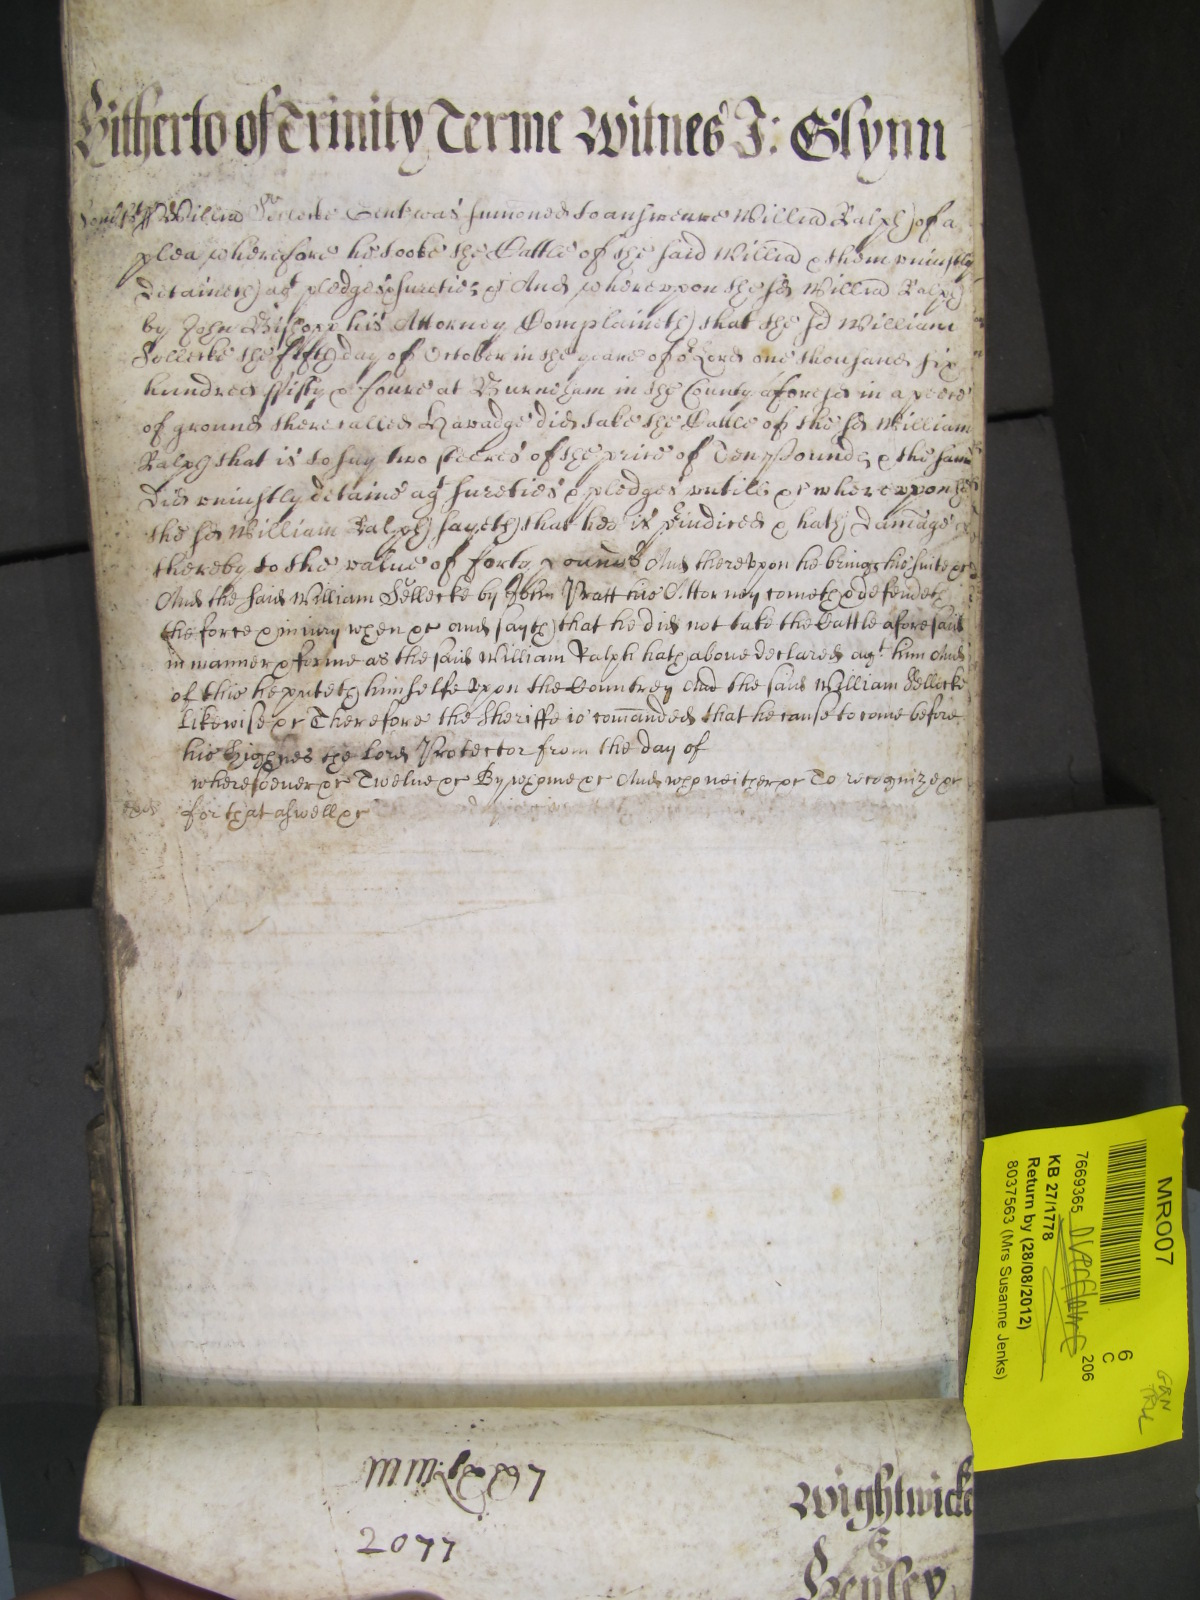 Hitherto of Trinity Terme Witnes J: Glynn
Willia Sellecke Gent was sumoned to answeare Willia Ralph of a
plea wherefore he tooke the Cattle of the said Willia & them uniustly
detaineth agt pledges & sureties &c And whereupon the sd Willia Ralph
by John Bishopp his Attorney Complaineth that the sd William
Sellecke the fifth day of October in the yeare of or Lord one thousand six
hundred ffifty & foure at Burneham in the County aforesd in a peece
of ground there called Havadge did take the Cattle of the sd William
Ralph that is to say two steeres of the price of Tenn Pounds & the same
did uniustly detaine agt sureties & pledges untill &c whereupon
the sd William Ralph sayeth that hee is Iniured & hath damage
thereby to the value of forty Pounds And thereupon he brings his suite &c
And the said William Sellecke by John Pratt his Attorney cometh & defendeth
the force & iniury when &c And sayth that he did not take the Cattle aforesaid
in manner & forme as the said William Ralph hath above declared agt him And
of this he putteth himselfe Upon the Countrey And the said William Sellecke
likewise &c Therefore the Sheriffe is comanded that he cause to come before
his Highnes the Lord Protector from the day of
wheresoever &c Twelve &c By whome &c And who neither &c To recognize &c
for that aswell &c
MM:lxxvij
2077
Wightwicke
&
Henley
MR007
6
C
7669365
206
KB 27/1778
Return by (28/08/2012)
8037563 (Mrs Susanne Jenks)